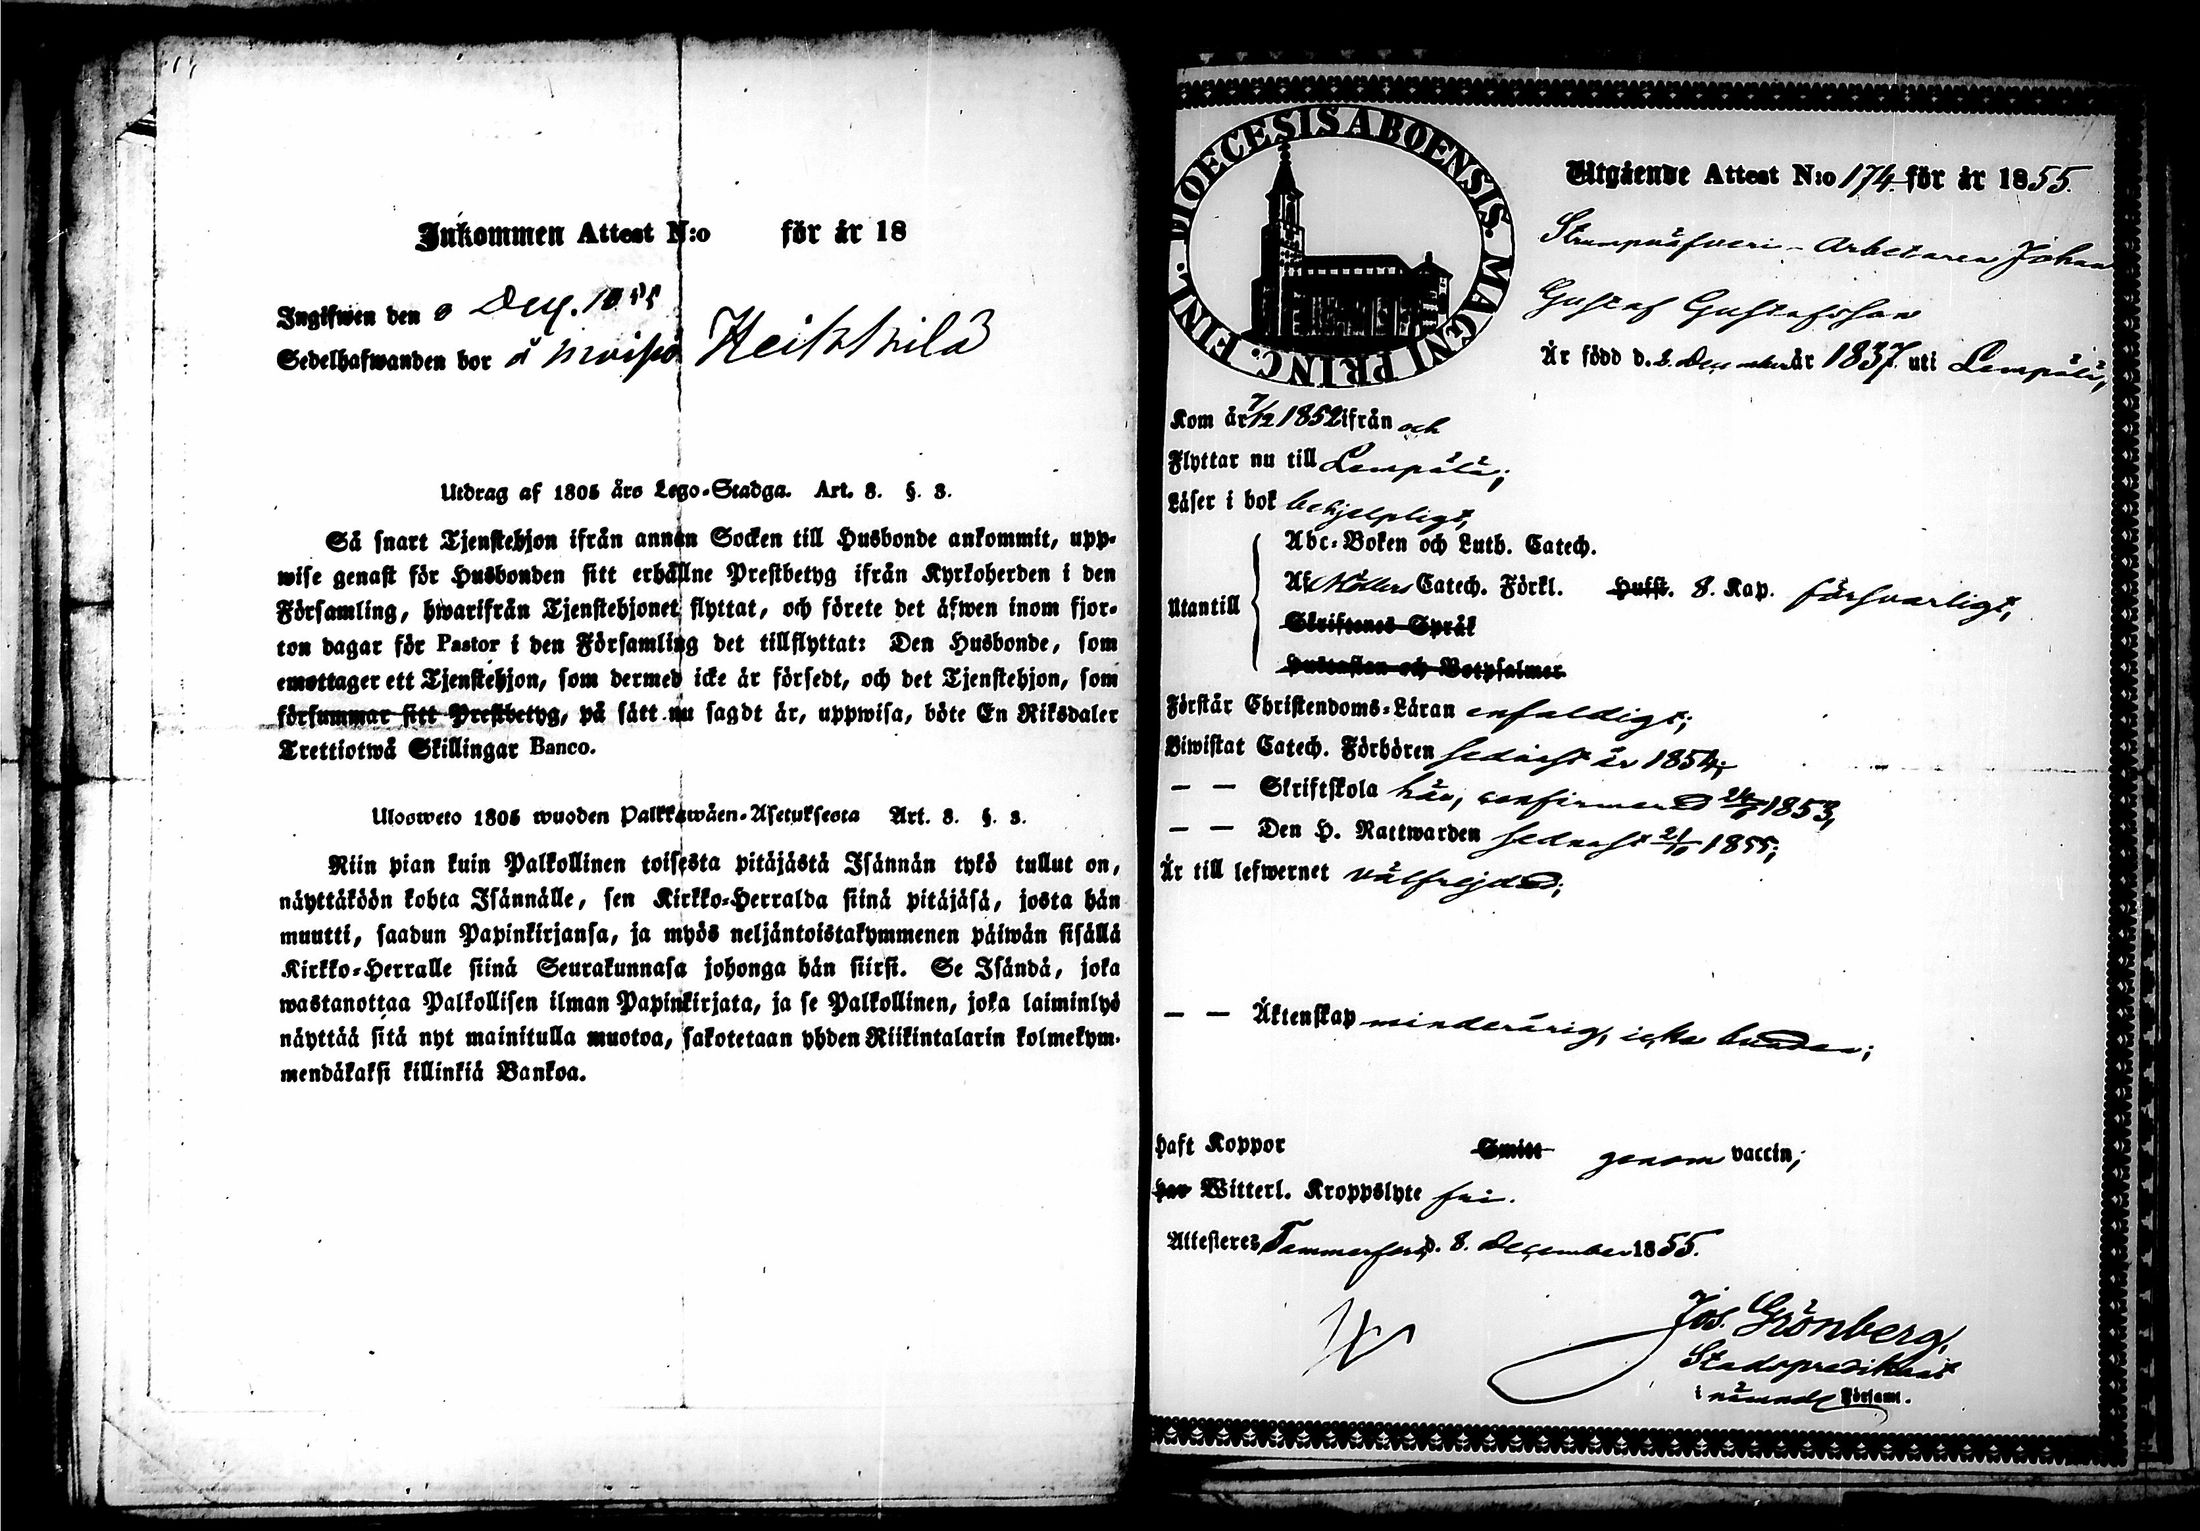 Inkommen Attest N:o för år 18
Ingifwen den Dec. 1855
Sedelhafwanden bor å Moisio Heikkilä
Utdrag af 1805 års Lego-Stadga. Art. 8. §. 3.
Så snart Tjenstehjon ifrån annan Socken till Husbonde ankommit, upp-
wise genast för Husbonden sitt erhållne Prestbetyg ifrån Kyrkoherden i den
Församling, hwarifrån Tjenstehjonet flyttat, och förete det äfwen inom fjor-
ton dagar för Pastor i den Församling det tillflyttat: Den Husbonde, som
emottager ett Tjenstehjon, som dermed icke är försedt, och det Tjenstehjon, som
försummar sitt Prestbetyg, på sätt nu sagdt är, uppwisa, böte En Riksdaler
Trettiotwå Skillingar Banco.
Ulosweto 1805 wuoden Palkkawäen-Asetuksesta Art. 8. §. 3.
Niin pian kuin Palkollinen toisesta pitäjästä Isännän tykö tullut on,
näyttäköön kohta Isännälle, sen Kirkko-Herralda siinä pitäjäsä, josta hän
muutti, saadun Papinkirjansa, ja myös neljäntoistakymmenen päiwän sisällä
Kirkko-Herralle siinä Seurakunnasa johonga hän siirsi. Se Isändä, joka
wastanottaa Palkollisen ilman Papinkirjata, ja se Palkollinen, joka laiminlyö
näyttää sitä nyt mainitulla muotoa, sakotetaan yhden Riikintalarin kolmekym-
mendäkaksi killinkiä Bankoa.
DIOECESIS ABOENSIS. MAGNI PRINC. FINL.
Utgående Attest N:o 174 för år 1855.
Strumpväfveri-Arbetaren Johan
Gustaf Gustafsson
Är född d. 2. December år 1837. uti Lempälä,
Kom år 7/12 1852 ifrån och
Flyttar nu till Lempälä;
Läser i bok behjelpligt,
Abc-Boken och Luth. Catech.
Utantill Af Möllers Catech. Förkl. Husst. 8. Kap. försvarligt,
Skriftenes Språk
Hustaflan och Botpsalmer
Förstår Christendoms-Läran enfaldigt;
Biwistat Catech. Förhören sednast år 1854;
— — Skriftskola här, confirmerad 1853,
— — Den H. Nattwarden sednast 1855;
Är till lefwernet välfrejdad;
— — Äktenskap minderårig, icke bunden;
Haft Koppor Smitt genom vaccin;
Har Witterl. Kroppslyte fri.
Attesteres Tammerfors d. 8. December 1855.
Jos. Grönberg,
Stadspredikant
i nämnde Församl.